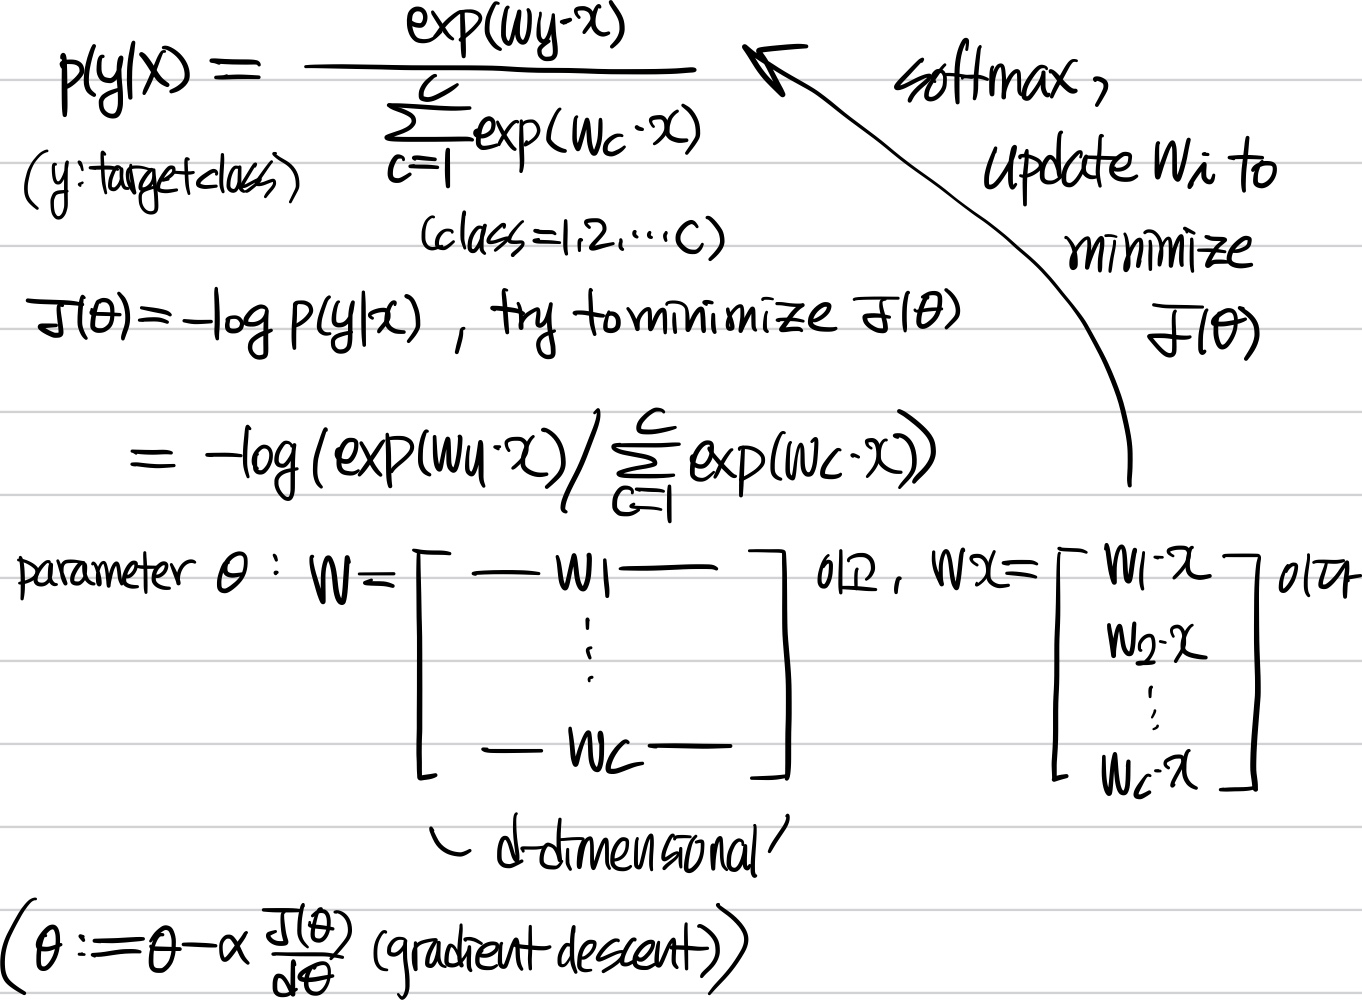 p(y|x) = exp(Wy·x) / C∑c=1 exp(Wc·x)
(y: target class)
(class=1,2,⋯C)
softmax,
update Wi to
minimize
J(θ)
J(θ)=-log p(y|x), try to minimize J(θ)
= -log(exp(Wy·x)/C∑c=1 exp(Wc·x))
parameter θ: W=[—W1— ⋮ —Wc—] 이고, Wx=[W1·x W2·x ⋮ Wc·x] 이다
d-dimensional
(θ:=θ-α J(θ)/dθ (gradient descent))